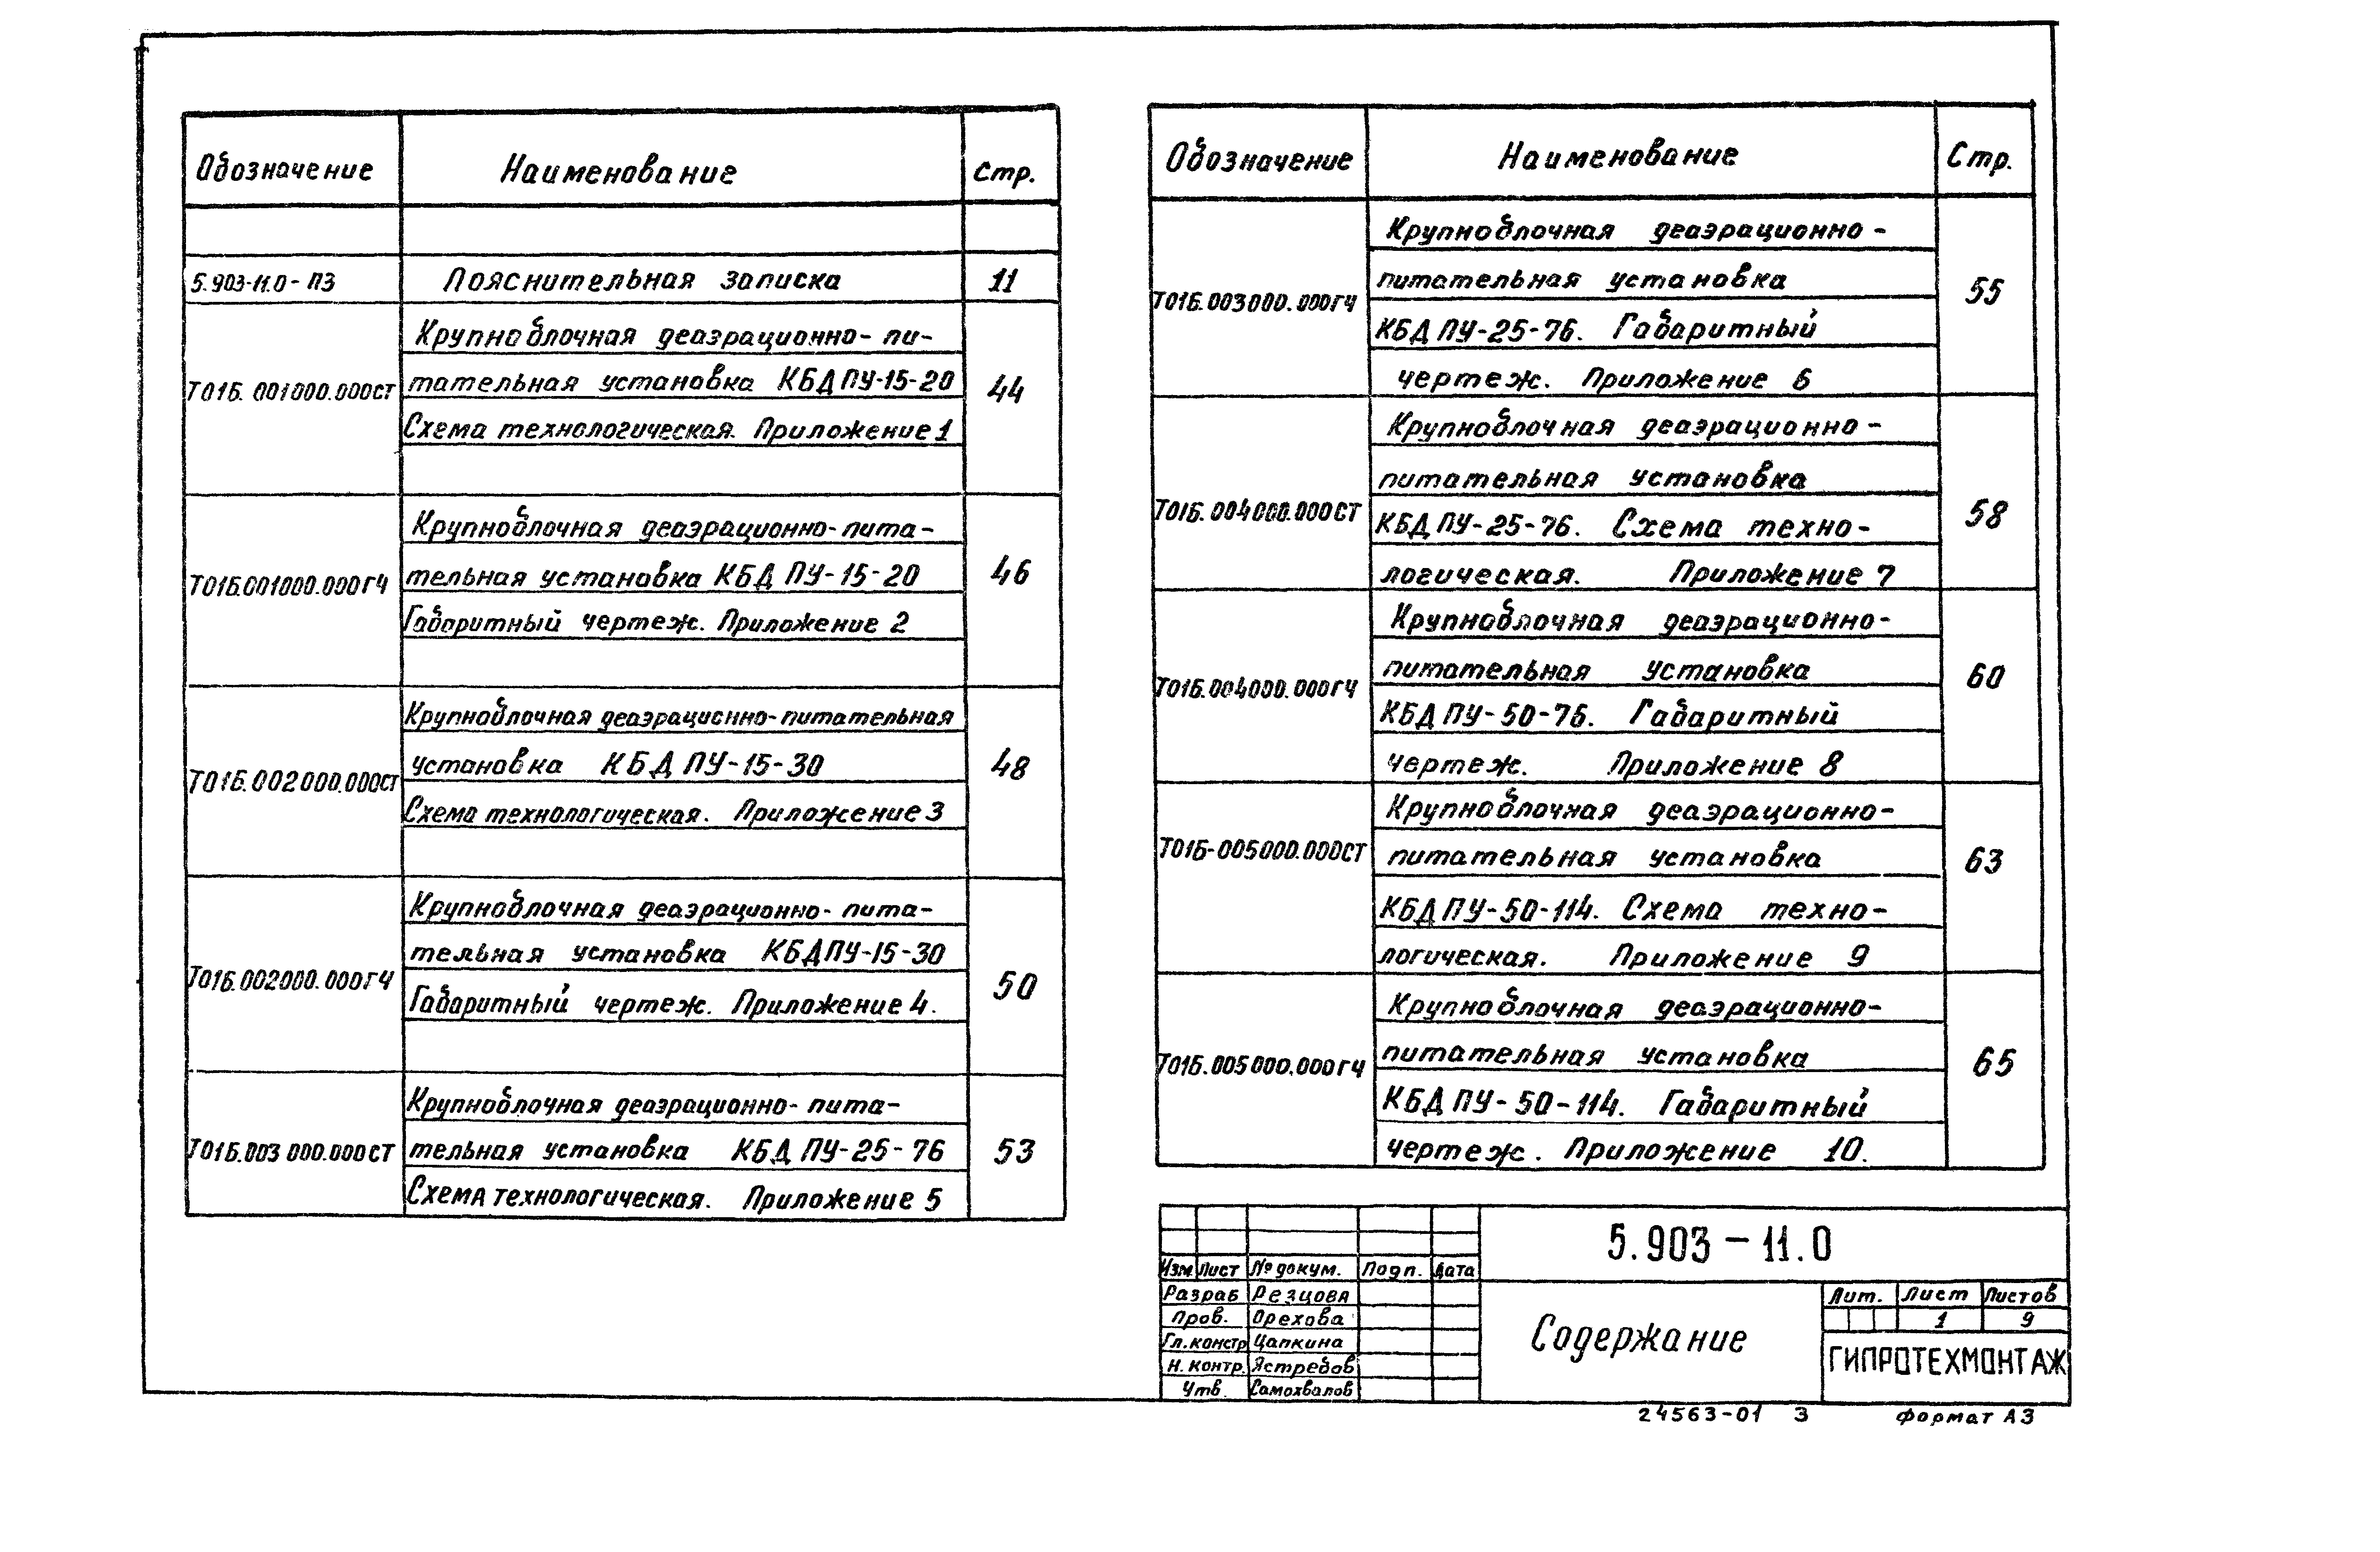 Обозначение Наименование Стр.
5.903-11.0-ПЗ Пояснительная записка 11
Крупноблочная деаэрационно-пи-
Т01Б.001000.000СТ тательная установка КБДПУ-15-20 44
Схема технологическая. Приложение 1
Крупноблочная деаэрационно-пита-
Т01Б.001000.000ГЧ тельная установка КБДПУ-15-20 46
Габаритный чертеж. Приложение 2
Крупноблочная деаэрационно-питательная
Т01Б.002000.000СТ установка КБДПУ-15-30 48
Схема технологическая. Приложение 3
Крупноблочная деаэрационно-пита-
тельная установка КБДПУ-15-30
Т01Б.002000.000ГЧ Габаритный чертеж. Приложение 4. 50
Крупноблочная деаэрационно-пита-
Т01Б.003000.000СТ тельная установка КБДПУ-25-76 53
Схема технологическая. Приложение 5
Обозначение Наименование Стр.
Крупноблочная деаэрационно-
питательная установка
Т01Б.003000.000ГЧ КБДПУ-25-76. Габаритный 55
чертеж. Приложение 6
Крупноблочная деаэрационно-
питательная установка
Т01Б.004000.000СТ КБДПУ-25-76. Схема техно- 58
логическая. Приложение 7
Крупноблочная деаэрационно-
питательная установка
Т01Б.004000.000ГЧ КБДПУ-50-76. Габаритный 60
чертеж. Приложение 8
Крупноблочная деаэрационно-
Т01Б-005000.000СТ питательная установка 63
КБДПУ-50-114. Схема техно-
логическая. Приложение 9
Крупноблочная деаэрационно-
Т01Б.005000.000ГЧ питательная установка 65
КБДПУ-50-114. Габаритный
чертеж. Приложение 10.
5.903-11.0
Изм Лист № докум. Подп. Дата
Разраб Резцова
Пров. Орехова
Гл.констр Цапкина
Н.контр. Ястребов
Утв. Самохвалов
Содержание
Лит. Лист Листов
1 9
ГИПРОТЕХМОНТАЖ
24563-01 3 Формат А3